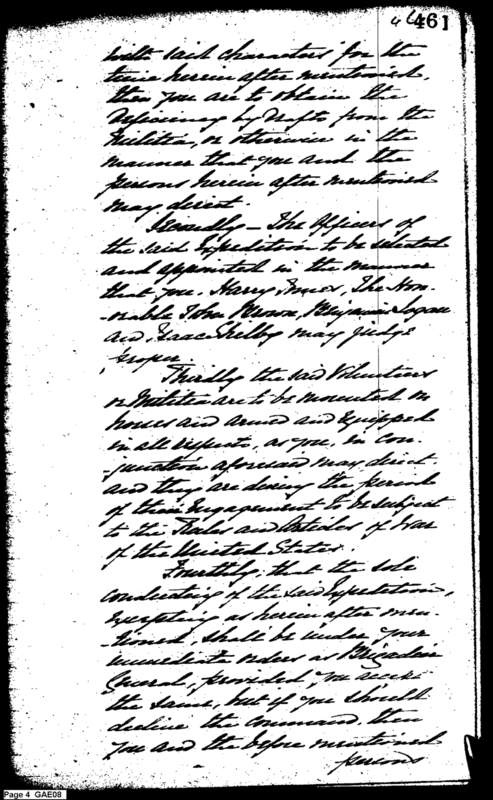 461
with said characters for the
time herein after mentioned,
then you are to obtain the
Deficiency by Drafts from the
Militia, or otherwise in the
manner that you and the
persons herein after mentioned
may direct.
Secondly – The Officers of
the said Expedition to be selected
and appointed in the manner
that you, Harry Innes, The Hon-
-orable John Brown, Benjamin Logan
and Isaac Shelby may judge
proper.
Thirdly the said Volunteers
or Militia are to be mounted on
horses and armed and equipped
in all respects, as you, in con-
-junction aforesaid may direct
and they are during the period
of their Engagement to be subject
to the Rules and Articles of War
of the United States.
Fourthly, that the sole
conducting of the said Expedition,
excepting as herein after men-
-tioned, shall be under your
immediate orders as Brigadier
General, provided you accept
the same, but if you should
decline the command, then
you and the before mentioned
persons
Page 4 GAE08